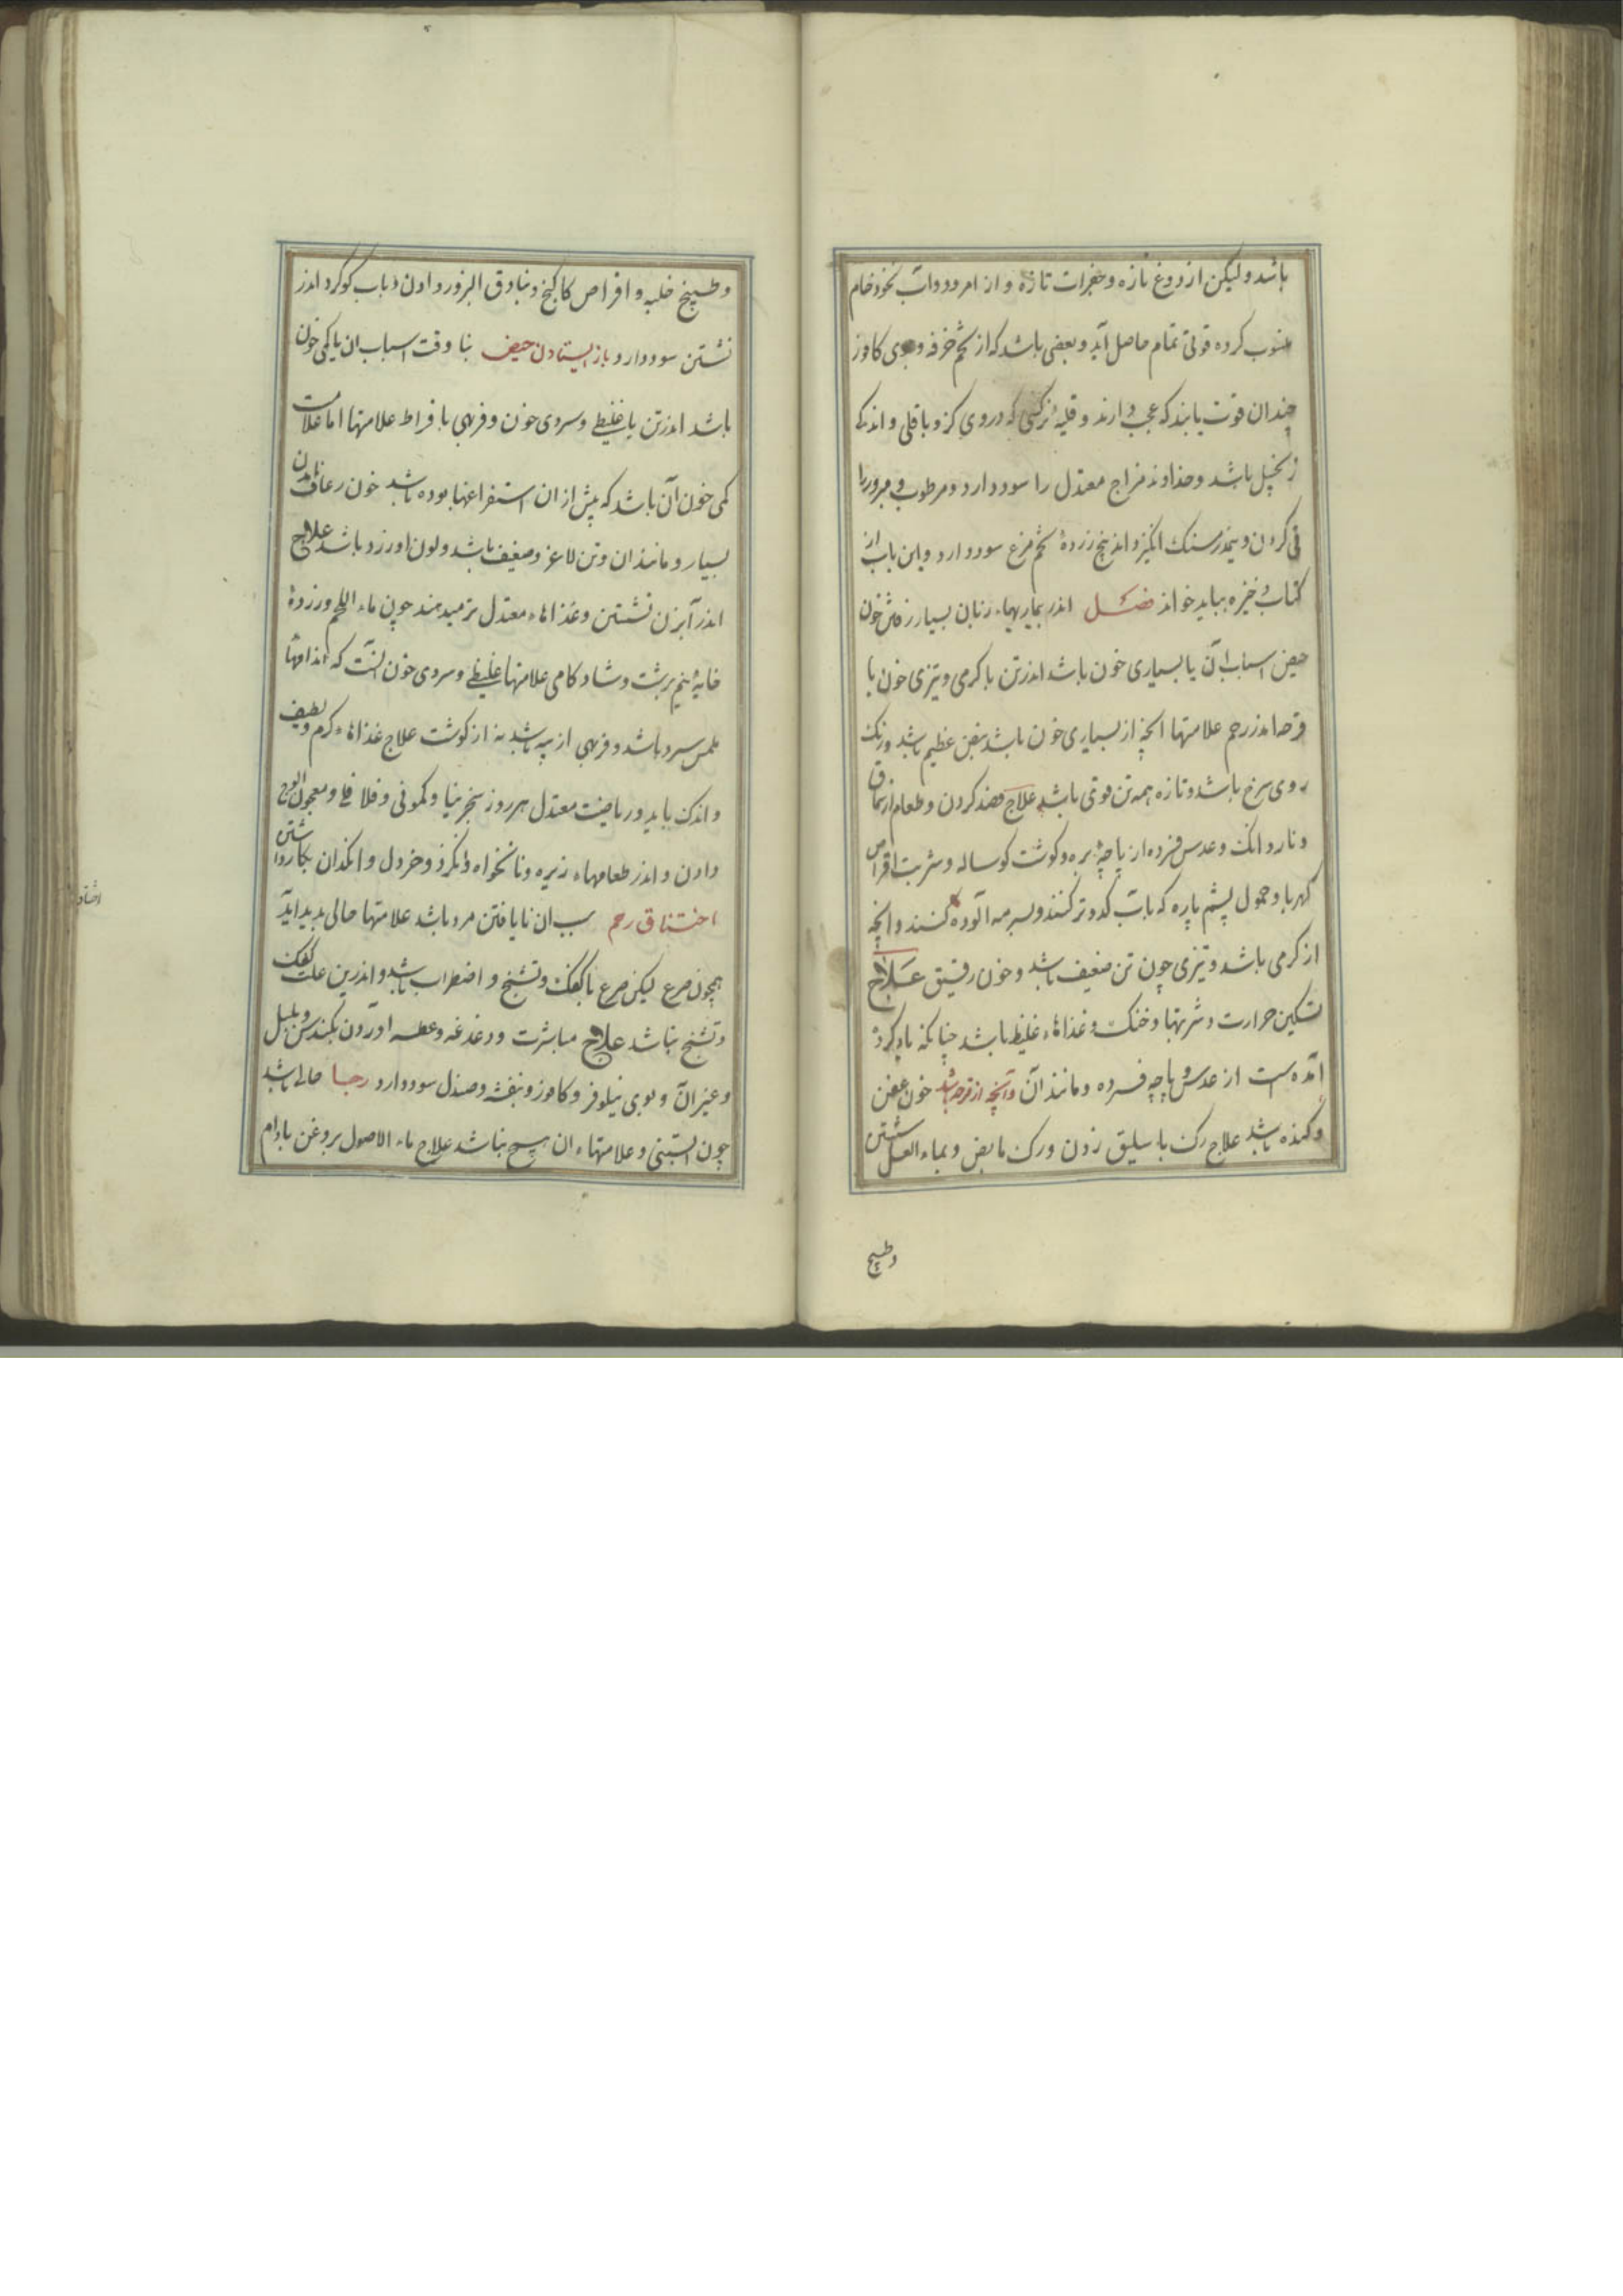 باشد ولیکن از دوغ تازه و جغرات تازه و از امرود و آب نخود خام
منسوب کرده قوتی تمام حاصل آید و بعضی باشد که از تخم خرفه و بوی کافور
چندان قوت یابند که عجب دارند و قلیهٔ نرگسی که در وی گزر و باقلی و اندک
زنجبیل باشد و خداوند مزاج معتدل را سود دارد و مرطوب و مبرود را
قی کردن و پنج زردهٔ تخم مرغ سود دارد و این باب از
کتاب ذخیره بباید خواند فصل اندر بیماریهاء زنان بسیار رفتن خون
حیض اسباب آن یا بسیاری خون باشد اندر تن یا گرمی و تیزی خون یا
قرحه اندر رحم علامتها آنچه از بسیاری خون باشد نبض عظیم باشد و رنگ
روی سرخ باشد و تازه همه تن قوی باشد علاج فصد کردن و طعام از سماق
و ناردانک و عدس فسرده از پاچهٔ بره و گوشت گوساله و شربت اقراص
کهربا و حمول پشم پاره که بآب گدو تر کنند و بسرمه آلوده کنند و آنچه
از گرمی باشد و تیزی چون تن ضعیف باشد و خون رقیق علاج
تسکین حرارت و شربتها و خنک و غذاهاء غلیظ باشد چنانکه یاد کرده
آمده است از عدس و پاچه فسرده و مانند آن و آنچه از قرحه باشد خون عفن
و گنده باشد علاج رگ باسلیق زدن و رگ مابض و بماء العسل شستن
وطبیخ
وطبیخ حلبه و اقراص کاکنج و بنادق البزور دادن و باب گوگرد اندر
نشستن سود دارد و باز ایستادن حیض بنا وقت اسباب ان یا کمی خون
باشد اندر تن یا غلیظی و سردی خون و فربهی بافراط علامتها اما علامت
کمی خون آن باشد که پیش از ان استفراغها بوده باشد خون رعاف
بسیار و مانند ان و تن لاغر و ضعیف باشد و لون او زرد باشد علاج
اندر آبزن نشستن و غذاهاء معتدل تر میدهند چون ماء اللحم و زردهٔ
خایهٔ نیم برشت و شادکامی علامتها غلیظی و سردی خون آنست که اندامها
بلمس سرد باشد و فربهی از پیه باشد نه از گوشت علاج غذاهاء گرم و لطیف
و اندک باید و ریاضت معتدل هر روز سنجرینا و کمونی و فلافلی و معجون الوج
دادن و اندر طعامهاء زیره و نانخواه و انگزد و خردل و انگدان بکار داشتن
اختناق رحم سبب ان نایافتن مرد باشد علامتها حالی پدید آید
همچون صرع لیکن صرع با کفک و تشنج و اضطراب باشد و اندرین علت کفک
و تشنج نباشد علاج مباشرت و دغدغه و عطسه آوردن بکندس و پلپل
و غیر آن و بوی نیلوفر و کافور و بنفشه و صندل سود دارد رجا حالی باشد
چون آبستنی و علامتهاء ان هیچ نباشد علاج ماء الاصول بروغن بادام